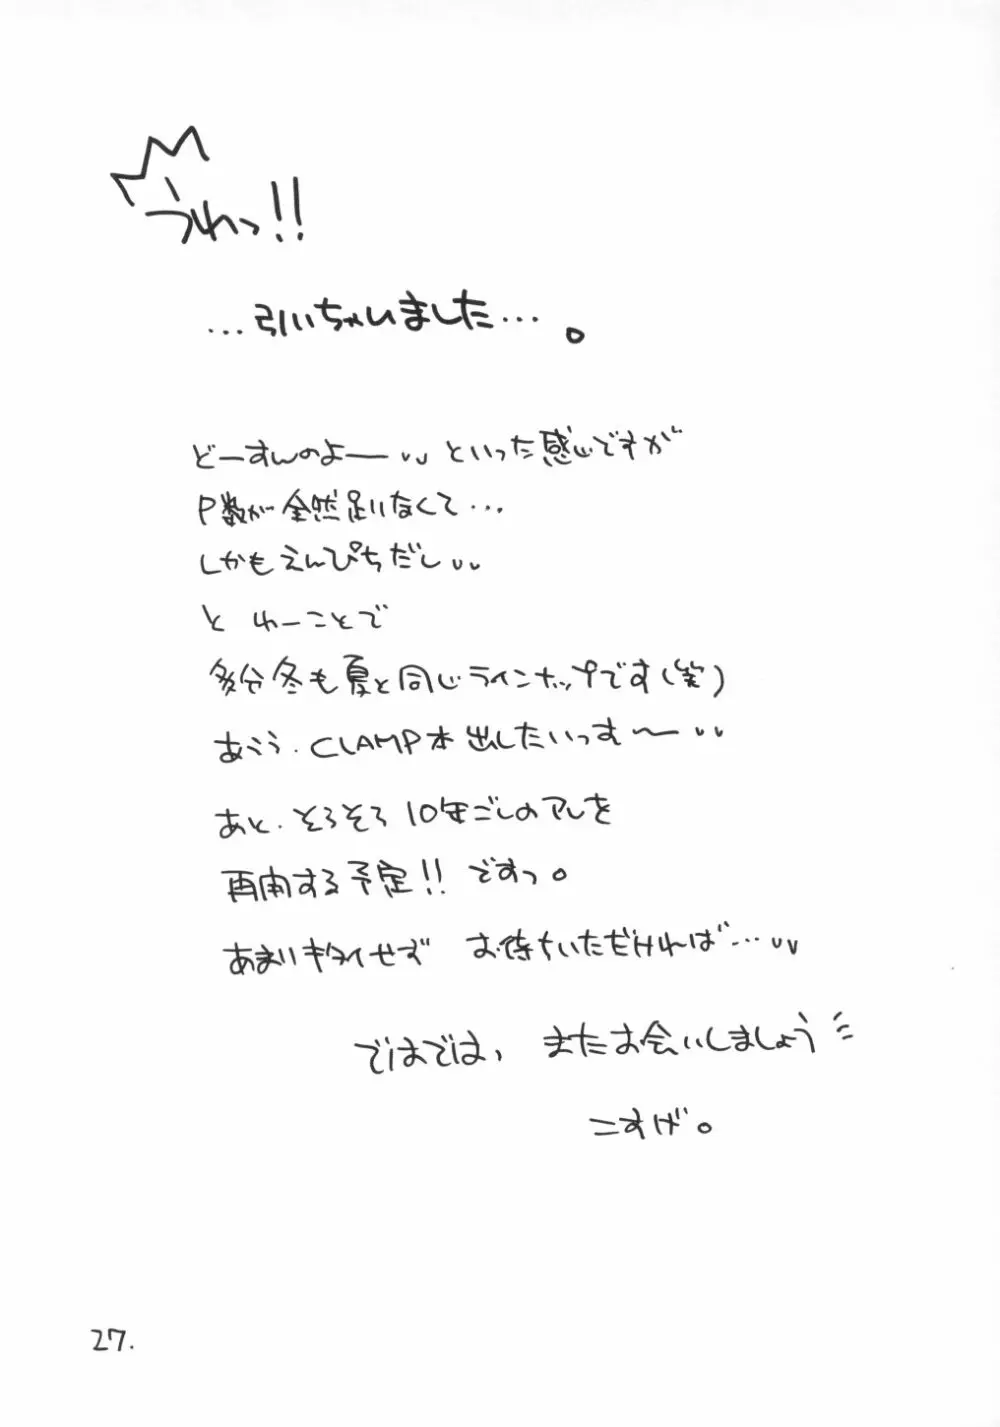 うわっ!!
…引いちゃいました…。
どーすんのよー といった感じですが
P数が全然足りなくて…
しかもえんぴつだし
と ゆーことで
多分冬も夏と同じラインナップです(笑)
あうう. CLAMP本出したいっす〜
あと. そろそろ10年ごしのアレを
再開する予定!! ですっ。
あまりキタイせず お待ちいただければ…
ではでは、またお会いしましょう
こすげ。
27.